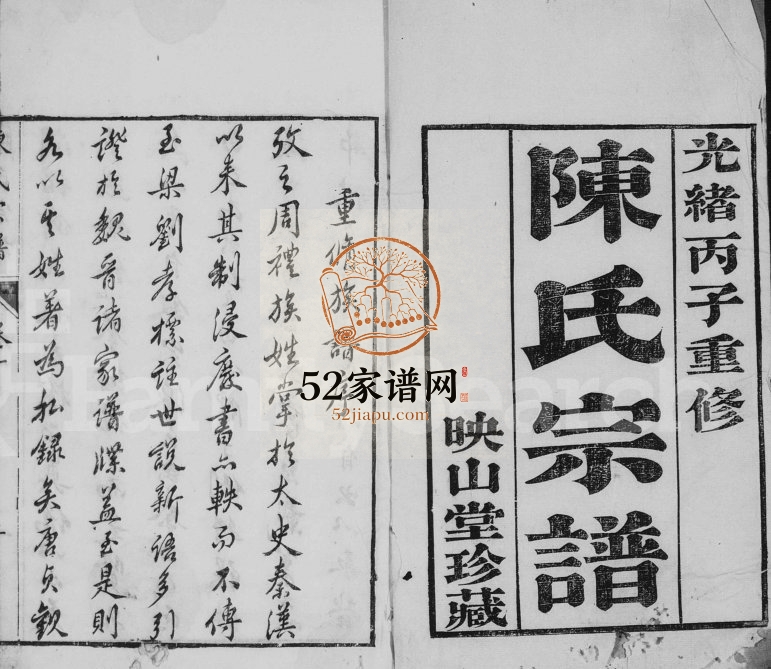 光緒丙子重修
陳氏宗譜
映山堂珍藏
重修族譜
攷之周禮族姓掌於太史秦漢
以來其制浸廢書亦軼而不傳
至梁劉孝標註世說新語多引
證於魏晉諸家譜牒蓋至是則
各以其姓著為私錄矣唐貞觀
52家谱网
52jiapu.com